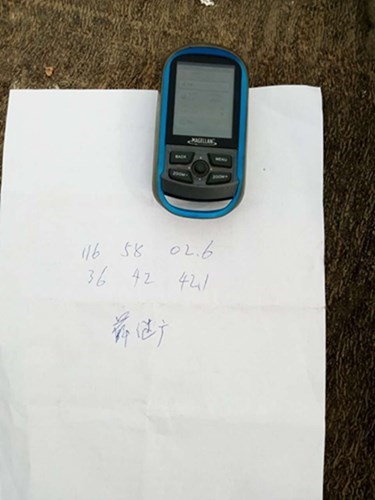 MAGELLAN
BACK MENU
ZOOM- ZOOM+
116 58 02.6
36 42 42.1
薛继广